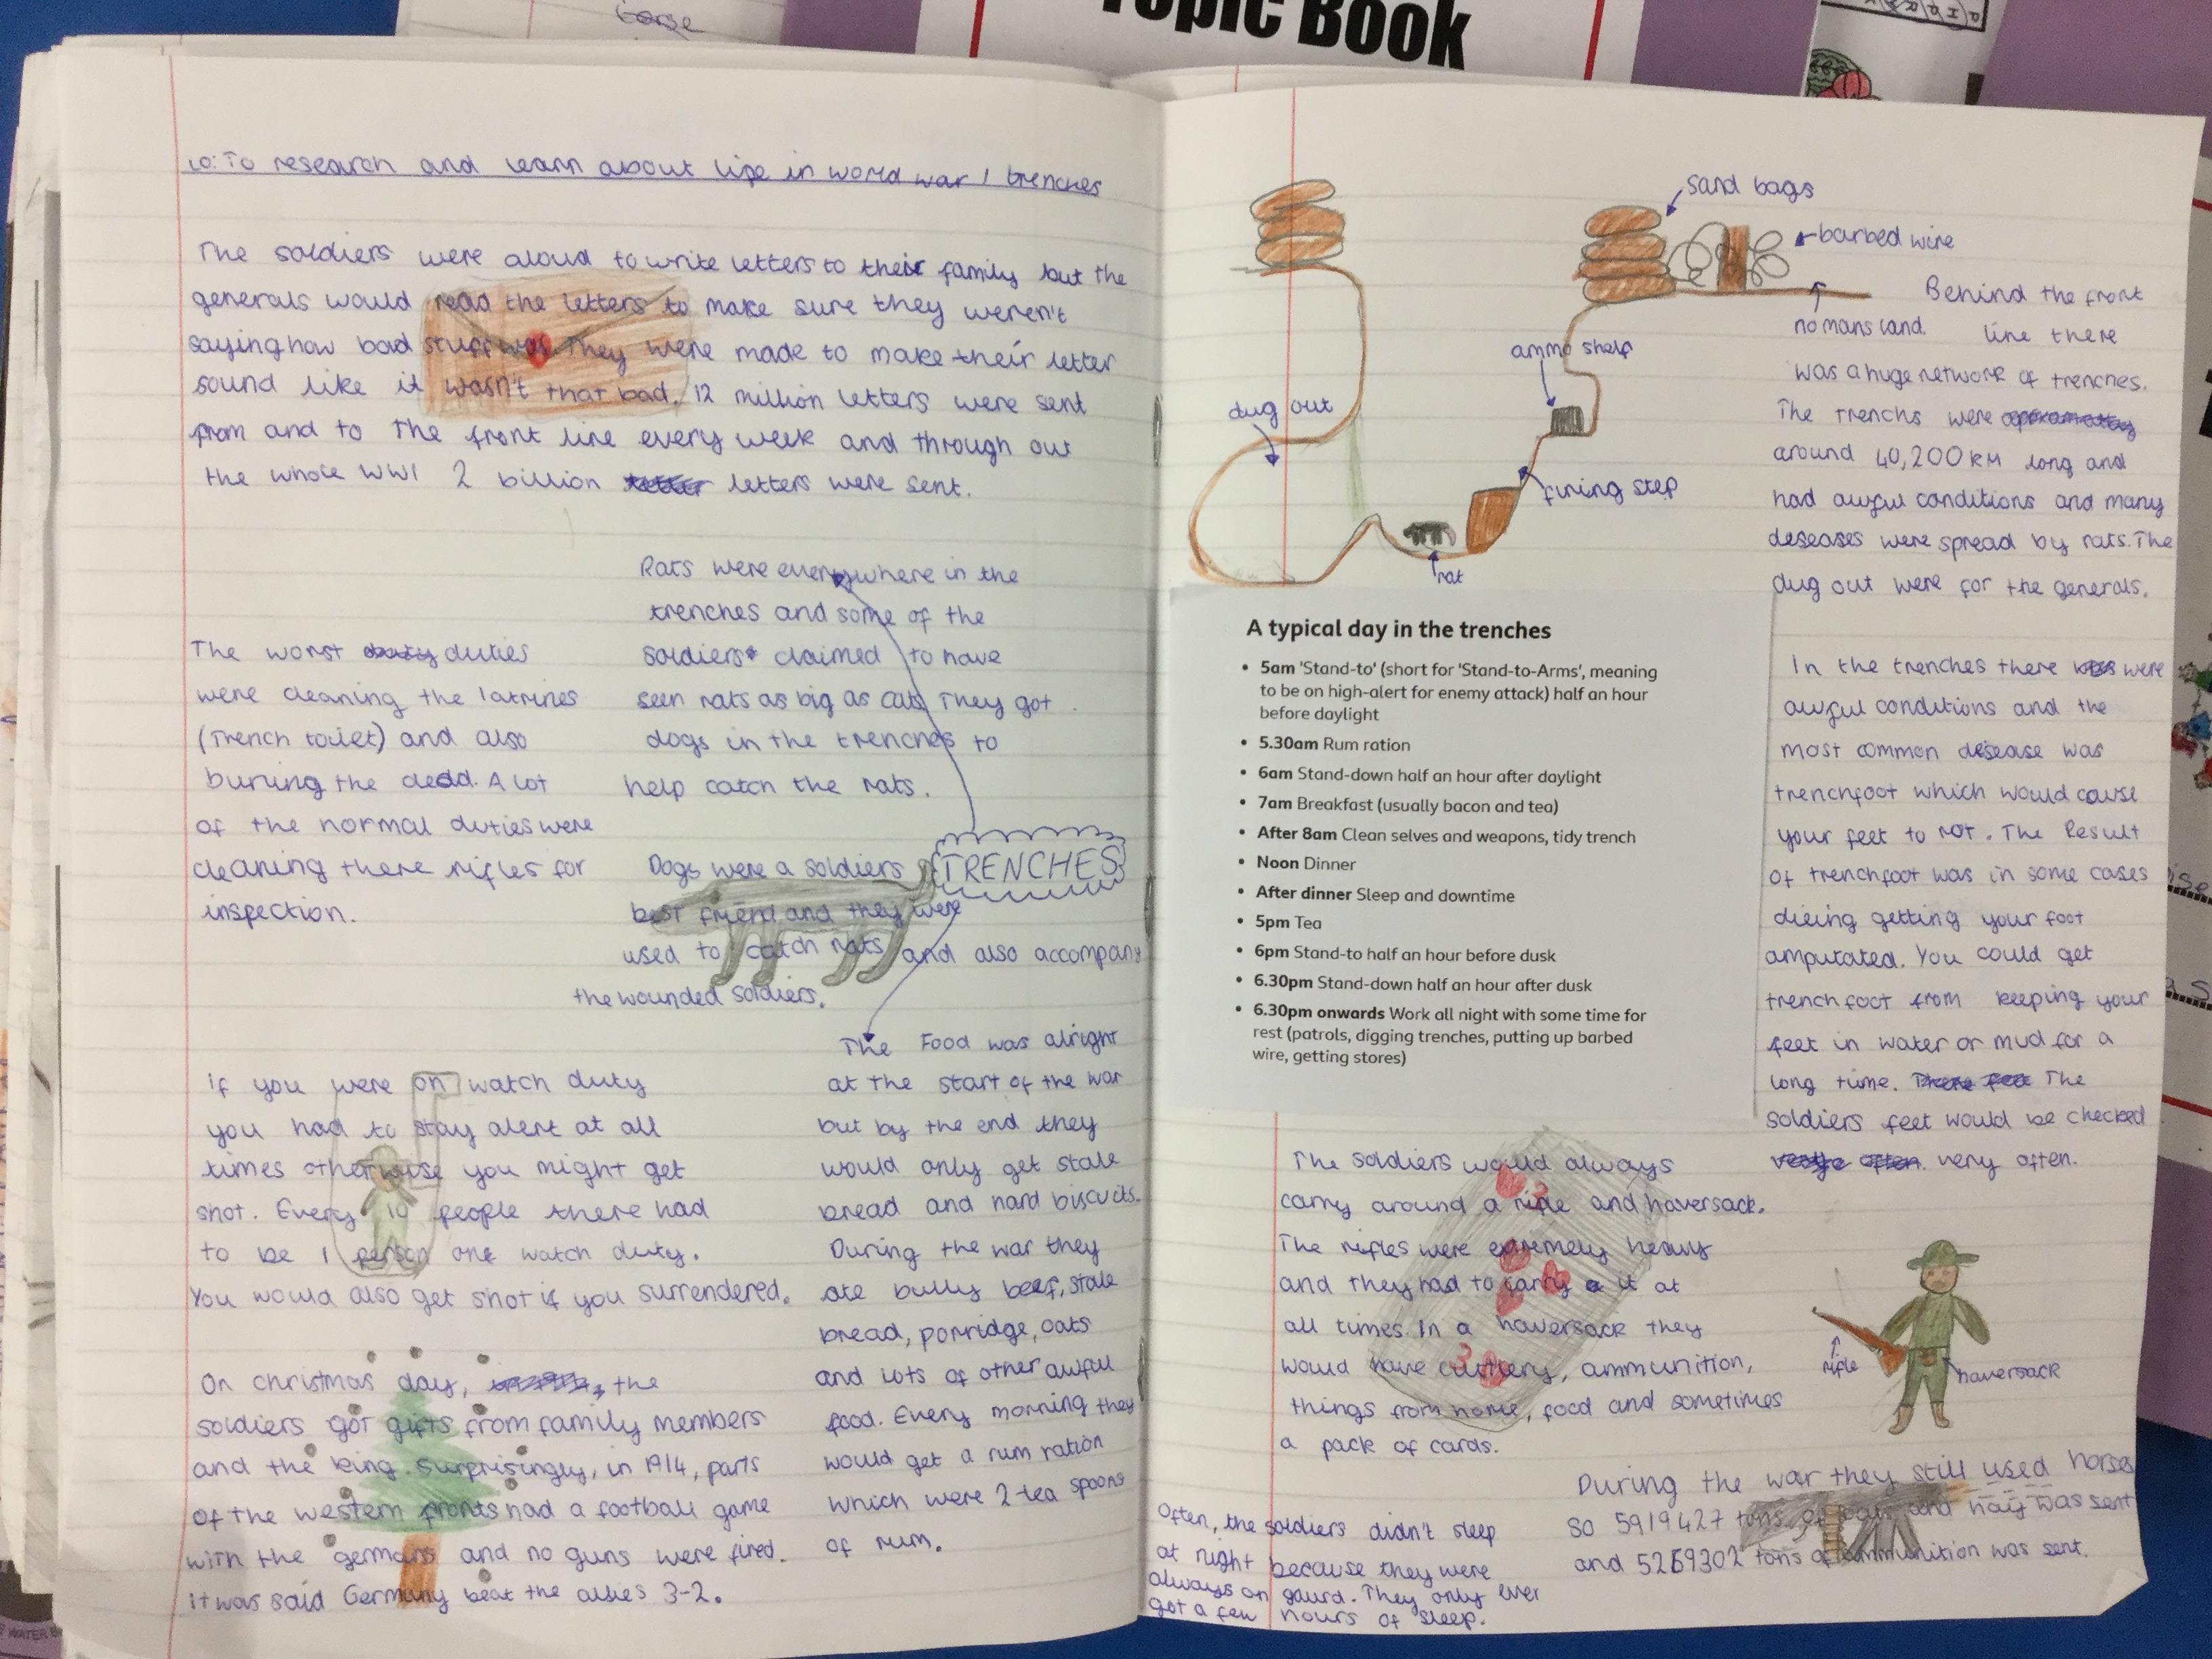 Topic Book
LO: To research and learn about life in world war 1 trenches
The soldiers were aloud to write letters to their family but the
generals would read the letters to make sure they weren't
saying how bad stuff was. They were made to make their letter
sound like it wasn't that bad. 12 million letters were sent
from and to the front line every week and through out
the whole WW1 2 billion letters were sent.
Rats were everywhere in the
trenches and some of the
soldiers claimed to have
seen rats as big as cats. They got
dogs in the trenches to
help catch the rats.
The worst duties
were cleaning the latrines
(trench toilet) and also
buring the dead. A lot
of the normal duties were
cleaning there rifles for
inspection.
TRENCHES
Dogs were a soldiers
best friend and they were
used to catch rats and also accompany
the wounded soldiers.
if you were on watch duty
you had to stay alert at all
times otherwise you might get
shot. Every 10 people there had
to be 1 person one watch duty.
You would also get shot if you surrendered.
The Food was alright
at the start of the war
but by the end they
would only get stale
bread and hard biscuits.
During the war they
ate bully beef, stale
bread, porridge, oats
and lots of other awful
food. Every morning they
would get a rum ration
which were 2 tea spoons
of rum.
On christmas day, the
soldiers got gifts from family members
and the king. Surprisingly, in 1914, parts
of the western fronts had a football game
with the germans and no guns were fired.
it was said Germany beat the allies 3-2.
sand bags
barbed wire
no mans land.
ammo shelf
dug out
firing step
rat
Behind the front
line there
was a huge network of trenches.
The trenchs were
around 40,200KM long and
had awful conditions and many
deseases were spread by rats. The
dug out were for the generals.
A typical day in the trenches
• 5am 'Stand-to' (short for 'Stand-to-Arms', meaning
to be on high-alert for enemy attack) half an hour
before daylight
• 5.30am Rum ration
• 6am Stand-down half an hour after daylight
• 7am Breakfast (usually bacon and tea)
• After 8am Clean selves and weapons, tidy trench
• Noon Dinner
• After dinner Sleep and downtime
• 5pm Tea
• 6pm Stand-to half an hour before dusk
• 6.30pm Stand-down half an hour after dusk
• 6.30pm onwards Work all night with some time for
rest (patrols, digging trenches, putting up barbed
wire, getting stores)
In the trenches there were
awful conditions and the
most common disease was
trenchfoot which would cause
your feet to rot. The Result
of trenchfoot was in some cases
dieing getting your foot
amputated. You could get
trenchfoot from keeping your
feet in water or mud for a
long time. The
soldiers feet would be checked
very often.
The soldiers would always
carry around a rifle and haversack.
The rifles were exremely heavy
and they had to carry it at
all times. In a haversack they
would have cuttlery, ammunition,
things from home, food and sometimes
a pack of cards.
rifle
haversack
During the war they still used horses
so 5919427 tons of oats and hay was sent
and 5269302 tons of ammunition was sent.
Often, the soldiers didn't sleep
at night because they were
always on gaurd. They only ever
got a few hours of sleep.